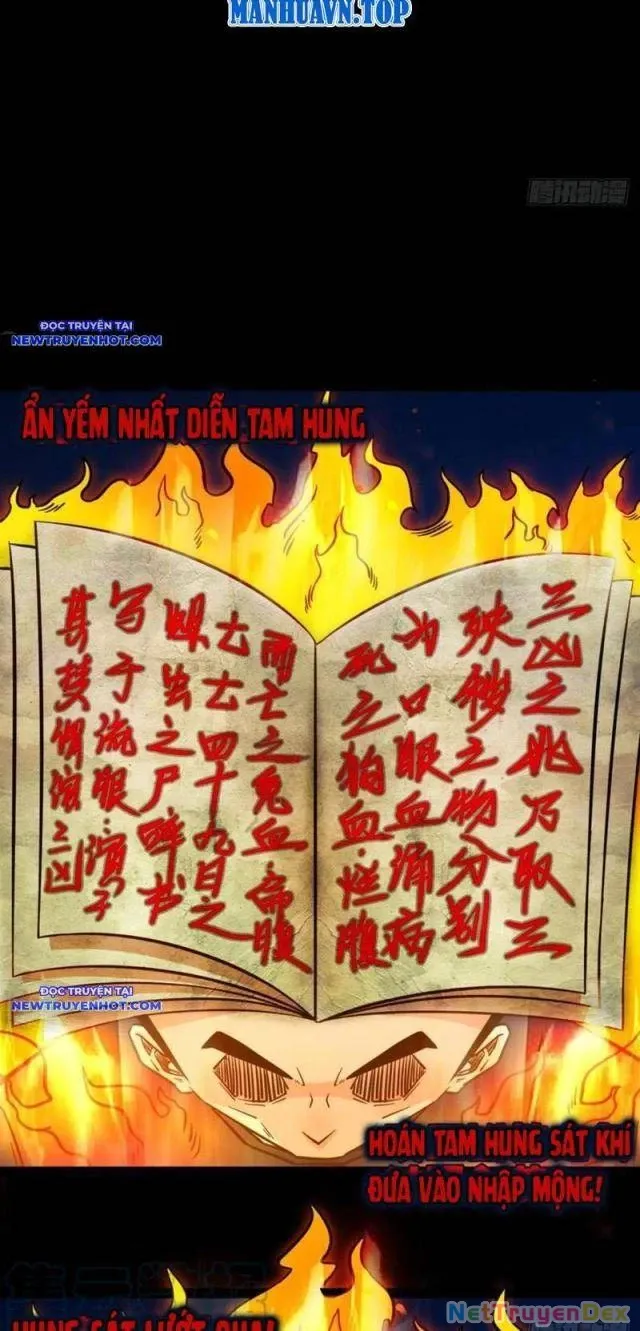 MANHUAVN.TOP
腾讯动漫
ĐỌC TRUYỆN TẠI
NEWTRUYENHOT.COM
ẨN YẾM NHẤT DIỄN TAM HUNG
三凶之兆乃取三
殃秽之物分别
为口眼血涌病
死之狗血烂腹
而亡之兔血帝腹
亡七四十九日之
虫之尸碎书
写于流眼演子
其焚惧演三凶
ĐỌC TRUYỆN TẠI
NEWTRUYENHOT.COM
HOÁN TAM HUNG SÁT KHÍ
ĐƯA VÀO NHẬP MỘNG!
HUNG SÁT LƯỚT QUA
NetTruyenDex